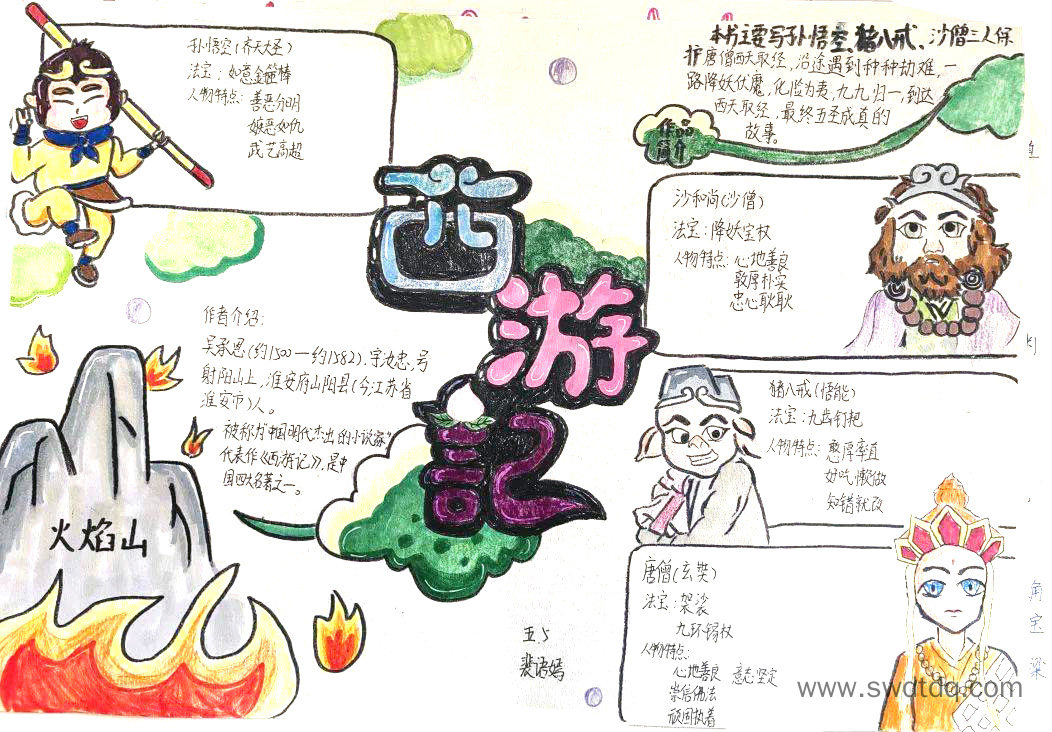 孙悟空(齐天大圣)
法宝:如意金箍棒
人物特点:善恶分明
嫉恶如仇
武艺高超
本书主要写孙悟空、猪八戒、沙僧三人保
护唐僧西天取经,沿途遇到种种劫难,一
路降妖伏魔,化险为夷,九九归一,到达
西天取经,最终五圣成真的
故事。
作品
简介
西游記
沙和尚(沙僧)
法宝:降妖宝杖
人物特点:心地善良
敦厚朴实
忠心耿耿
作者介绍:
吴承恩(约1500一约1582)、字汝忠,号
射阳山上,淮安府山阳县(今江苏省
淮安市)人。
被称为"中国明代杰出的小说家"
代表作《西游记》,是中
国四大名著之一。
猪八戒(悟能)
法宝:九齿钉耙
人物特点:憨厚率直
好吃懒做
知错就改
火焰山
唐僧(玄奘)
法宝:袈裟
九环锡杖
人物特点:
心地善良 意志坚定
崇信佛法
顽固执着
五.5
裴语嫣
角
宝
梁
www.swdtdq.com